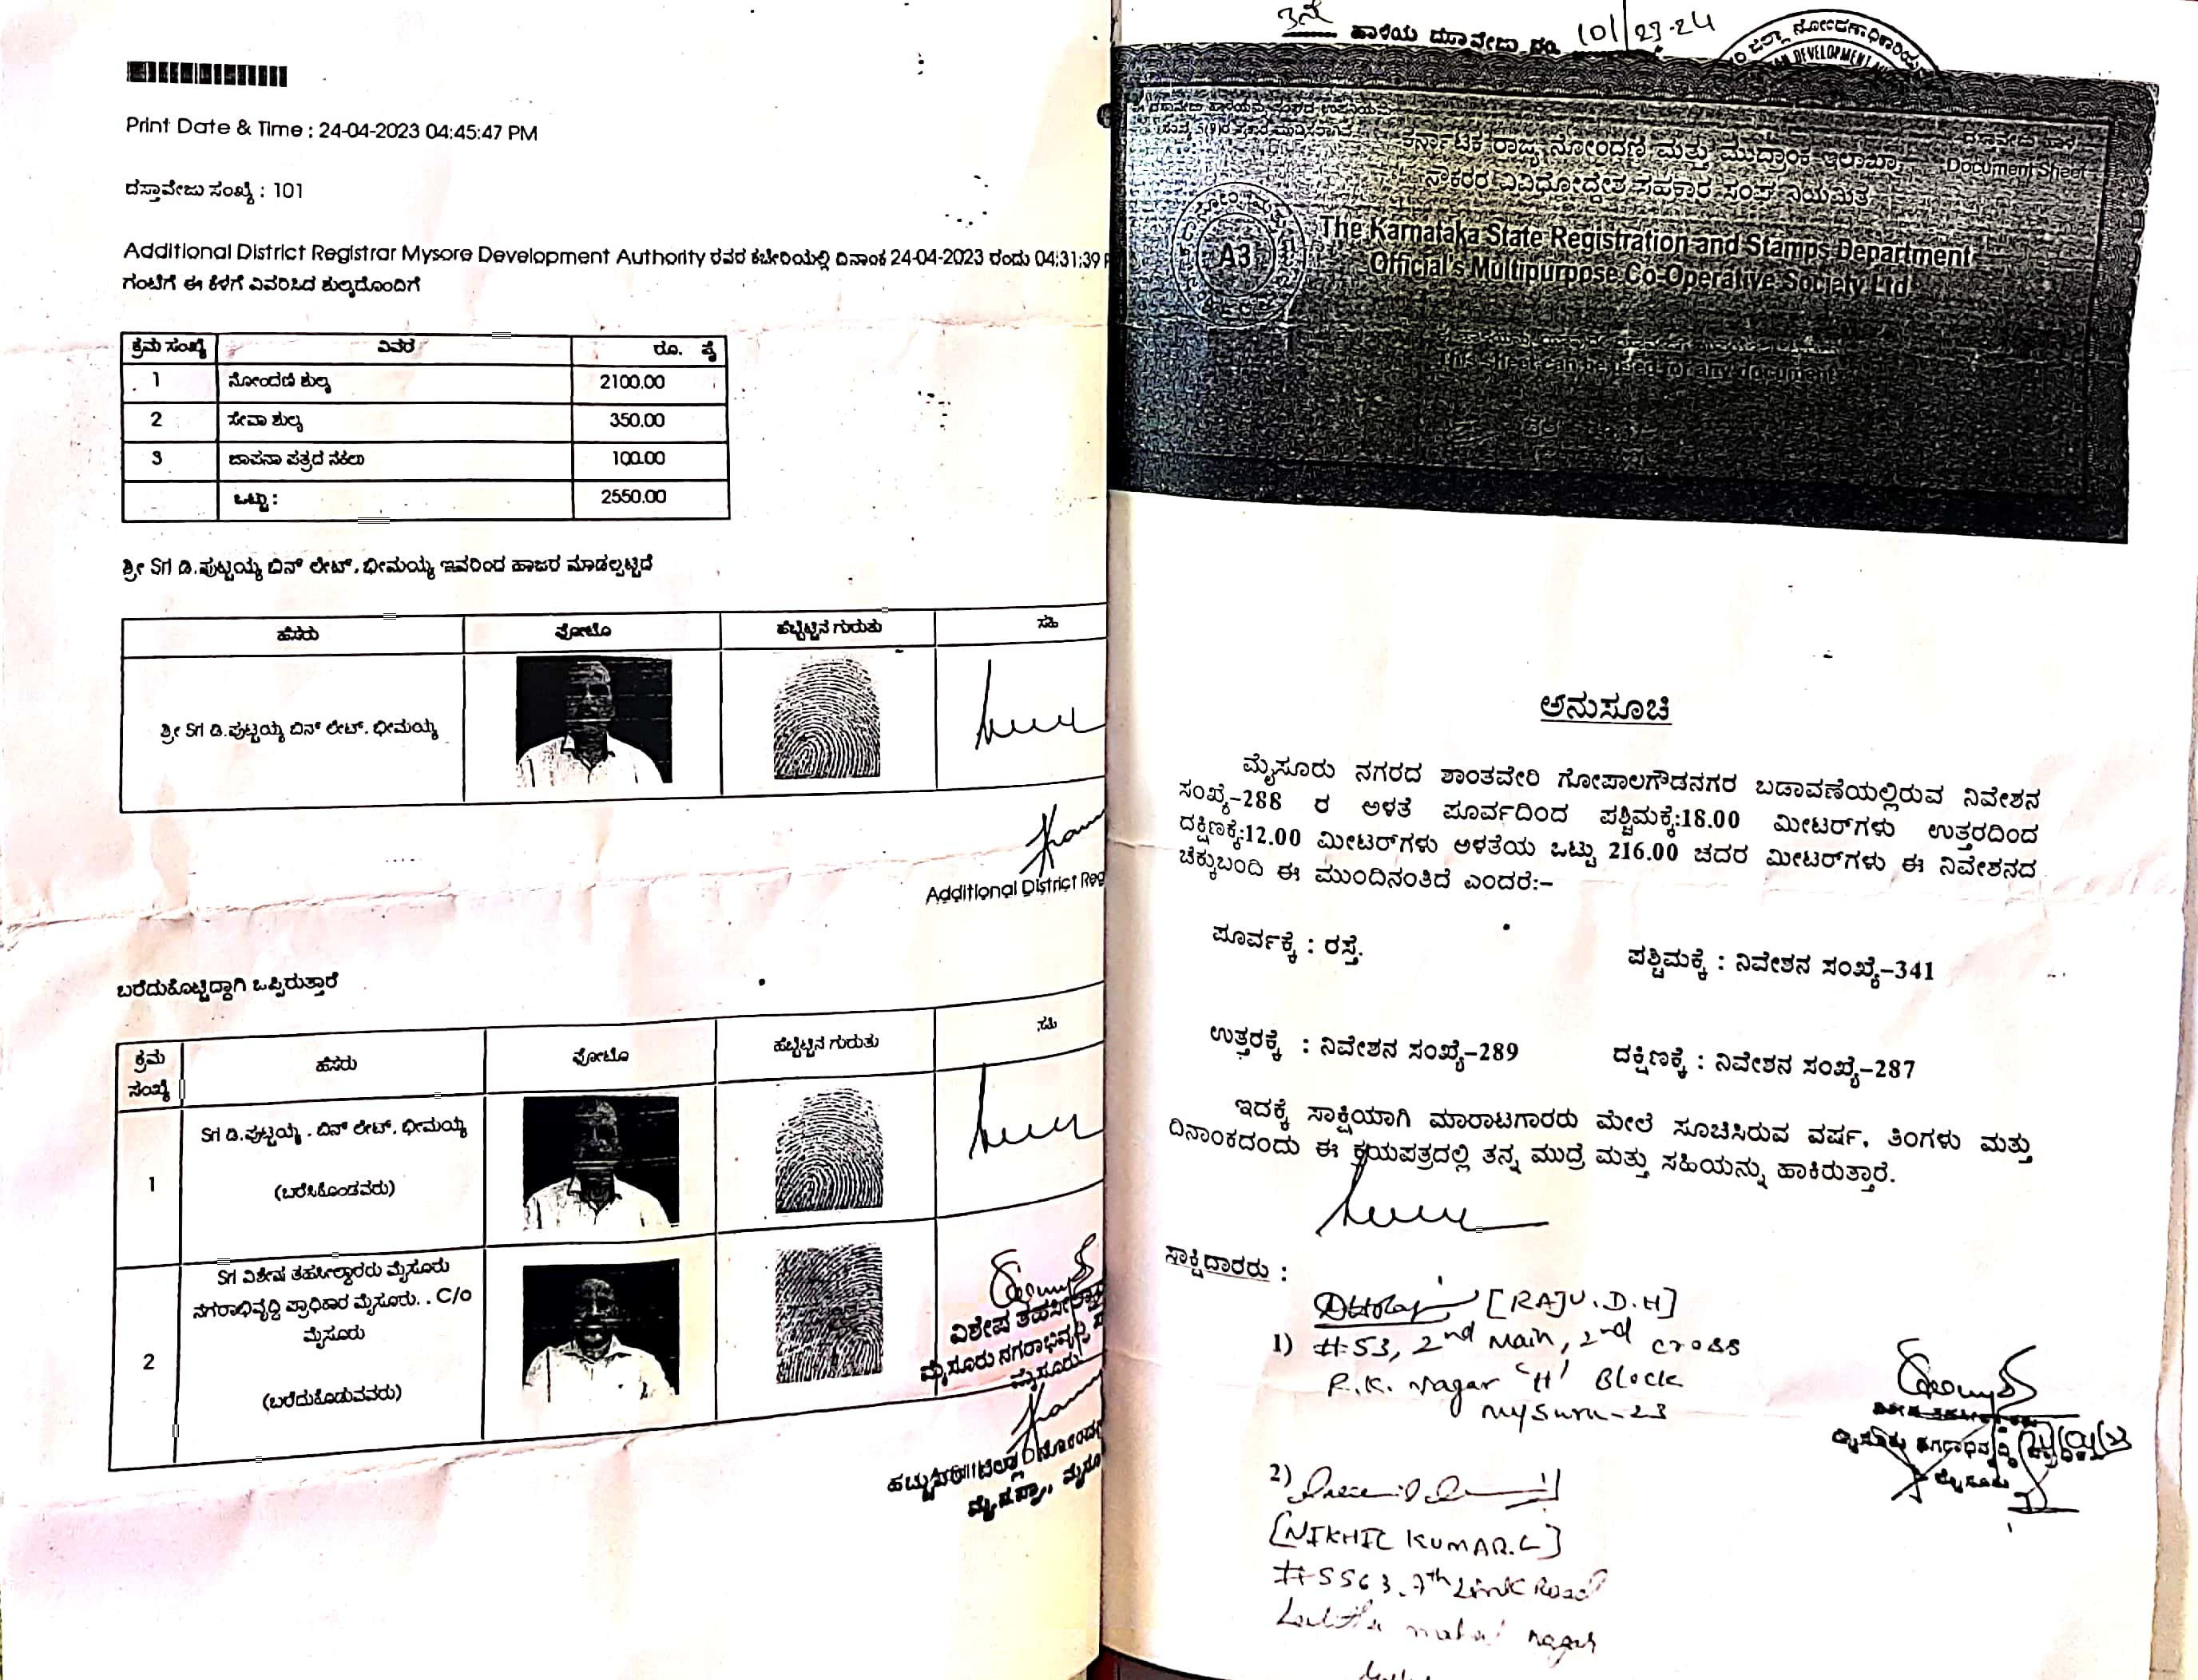 Print Date & Time : 24-04-2023 04:45:47 PM
ದಸ್ತಾವೇಜು ಸಂಖ್ಯೆ : 101
Additional District Registrar Mysore Development Authority ರವರ ಕಚೇರಿಯಲ್ಲಿ ದಿನಾಂಕ 24-04-2023 ರಂದು 04:31:39 P
ಗಂಟೆಗೆ ಈ ಕೆಳಗೆ ವಿವರಿಸಿದ ಶುಲ್ಕದೊಂದಿಗೆ
ಕ್ರಮ ಸಂಖ್ಯೆ ವಿವರ ರೂ. ಪೈ
1 ನೋಂದಣಿ ಶುಲ್ಕ 2100.00
2 ಸೇವಾ ಶುಲ್ಕ 350.00
3 ಜ್ಞಾಪನಾ ಪತ್ರದ ನಕಲು 100.00
ಒಟ್ಟು : 2550.00
ಶ್ರೀ Sri ಡಿ.ಪುಟ್ಟಯ್ಯ ಬಿನ್ ಲೇಟ್. ಭೀಮಯ್ಯ ಇವರಿಂದ ಹಾಜರ ಮಾಡಲ್ಪಟ್ಟಿದೆ
ಹೆಸರು ಫೋಟೊ ಹೆಬ್ಬೆಟ್ಟಿನ ಗುರುತು ಸಹಿ
ಶ್ರೀ Sri ಡಿ.ಪುಟ್ಟಯ್ಯ ಬಿನ್ ಲೇಟ್. ಭೀಮಯ್ಯ
Additional District Reg
ಬರೆದುಕೊಟ್ಟಿದ್ದಾಗಿ ಒಪ್ಪಿರುತ್ತಾರೆ
ಕ್ರಮ ಸಂಖ್ಯೆ ಹೆಸರು ಫೋಟೊ ಹೆಬ್ಬೆಟ್ಟಿನ ಗುರುತು ಸಹಿ
1 Sri ಡಿ.ಪುಟ್ಟಯ್ಯ . ಬಿನ್ ಲೇಟ್. ಭೀಮಯ್ಯ
(ಬರೆಸಿಕೊಂಡವರು)
2 Sri ವಿಶೇಷ ತಹಸೀಲ್ದಾರರು ಮೈಸೂರು
ನಗರಾಭಿವೃದ್ಧಿ ಪ್ರಾಧಿಕಾರ ಮೈಸೂರು. . C/o
ಮೈಸೂರು
(ಬರೆದುಕೊಡುವವರು)
ವಿಶೇಷ ತಹಸೀಲ್ದಾ
ಮೈಸೂರು ನಗರಾಭಿವೃದ್ಧಿ
ಮೈಸೂರು
3ನೇ ಹಾಳೆಯ ದಸ್ತಾವೇಜು ನಂ. 101/23-24
DEVELOPMENT
ದಸ್ತಾವೇಜು ಹಾಳೆ
Document Sheet
ಕರ್ನಾಟಕ ರಾಜ್ಯ ನೋಂದಣಿ ಮತ್ತು ಮುದ್ರಾಂಕ ಇಲಾಖಾ
ನೌಕರರ ವಿವಿಧೋದ್ದೇಶ ಸಹಕಾರ ಸಂಘ ನಿಯಮಿತ
A3
The Karnataka State Registration and Stamps Department
Official's Multipurpose Co-Operative Society Ltd
This sheet can be used for any document
ಅನುಸೂಚಿ
ಮೈಸೂರು ನಗರದ ಶಾಂತವೇರಿ ಗೋಪಾಲಗೌಡನಗರ ಬಡಾವಣೆಯಲ್ಲಿರುವ ನಿವೇಶನ
ಸಂಖ್ಯೆ-288 ರ ಅಳತೆ ಪೂರ್ವದಿಂದ ಪಶ್ಚಿಮಕ್ಕೆ:18.00 ಮೀಟರ್‌ಗಳು ಉತ್ತರದಿಂದ
ದಕ್ಷಿಣಕ್ಕೆ:12.00 ಮೀಟರ್‌ಗಳು ಅಳತೆಯ ಒಟ್ಟು 216.00 ಚದರ ಮೀಟರ್‌ಗಳು ಈ ನಿವೇಶನದ
ಚೆಕ್ಕುಬಂದಿ ಈ ಮುಂದಿನಂತಿದೆ ಎಂದರೆ:-
ಪೂರ್ವಕ್ಕೆ : ರಸ್ತೆ. ಪಶ್ಚಿಮಕ್ಕೆ : ನಿವೇಶನ ಸಂಖ್ಯೆ-341
ಉತ್ತರಕ್ಕೆ : ನಿವೇಶನ ಸಂಖ್ಯೆ-289 ದಕ್ಷಿಣಕ್ಕೆ : ನಿವೇಶನ ಸಂಖ್ಯೆ-287
ಇದಕ್ಕೆ ಸಾಕ್ಷಿಯಾಗಿ ಮಾರಾಟಗಾರರು ಮೇಲೆ ಸೂಚಿಸಿರುವ ವರ್ಷ, ತಿಂಗಳು ಮತ್ತು
ದಿನಾಂಕದಂದು ಈ ಕ್ರಯಪತ್ರದಲ್ಲಿ ತನ್ನ ಮುದ್ರೆ ಮತ್ತು ಸಹಿಯನ್ನು ಹಾಕಿರುತ್ತಾರೆ.
ಸಾಕ್ಷಿದಾರರು :
[RAJU.D.H]
1) #53, 2nd main, 2nd cross
R.K. Nagar 'H' Block
mysuru-23
2)
[NIKHIL KUMAR.L]
#5563. 7th Link Road
nagar
ಮೈಸೂರು ನಗರಾಭಿವೃದ್ಧಿ
ಮೈಸೂರು